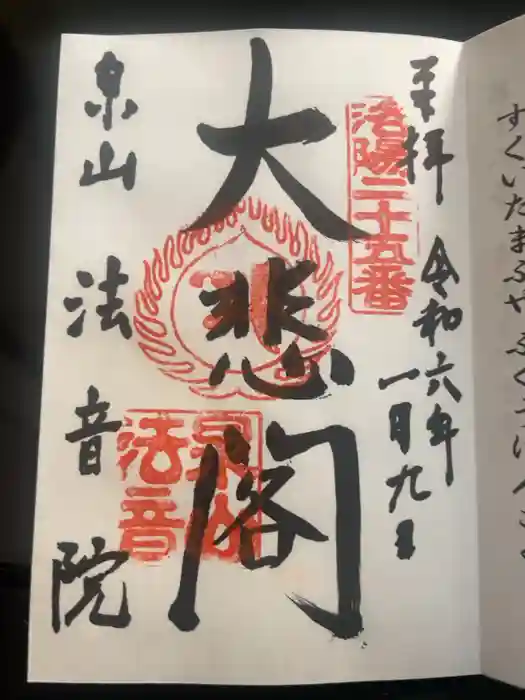 奉拝 令和六年
一月九日
洛陽二十五番
大悲閣
泉山 法音院
泉山
法音
すくいたまふや